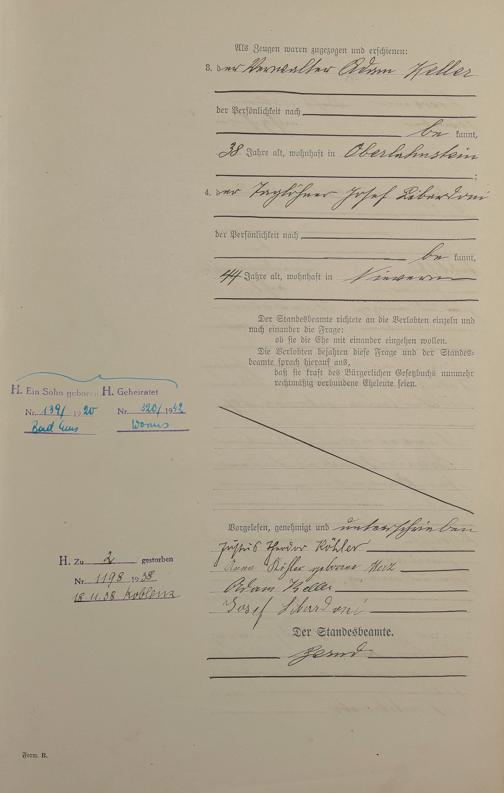 Als Zeugen waren zugezogen und erschienen:
3. der Verwalter Adam Keller
der Persönlichkeit nach
be kannt,
38 Jahre alt, wohnhaft in Oberlahnstein
;
4. der Taglöhner Josef Liberdoni
der Persönlichkeit nach
be kannt,
44 Jahre alt, wohnhaft in Nievern
Der Standesbeamte richtete an die Verlobten einzeln und
nach einander die Frage:
ob sie die Ehe mit einander eingehen wollen.
Die Verlobten bejahten diese Frage und der Standes-
beamte sprach hierauf aus,
daß sie kraft des Bürgerlichen Gesetzbuchs nunmehr
rechtmäßig verbundene Eheleute seien.
H. Ein Sohn geboren
Nr. 139/1920
Bad Ems
H. Geheiratet
Nr. 320/1942
Worms
Vorgelesen, genehmigt und unterschrieben
Justus Theodor Köhler
Anna Köhler geborene
Adam Keller
Josef Libardoni
H. Zu 2 gestorben
Nr. 1198 1938
18.11.38 Koblenz
Der Standesbeamte.
Form. B.